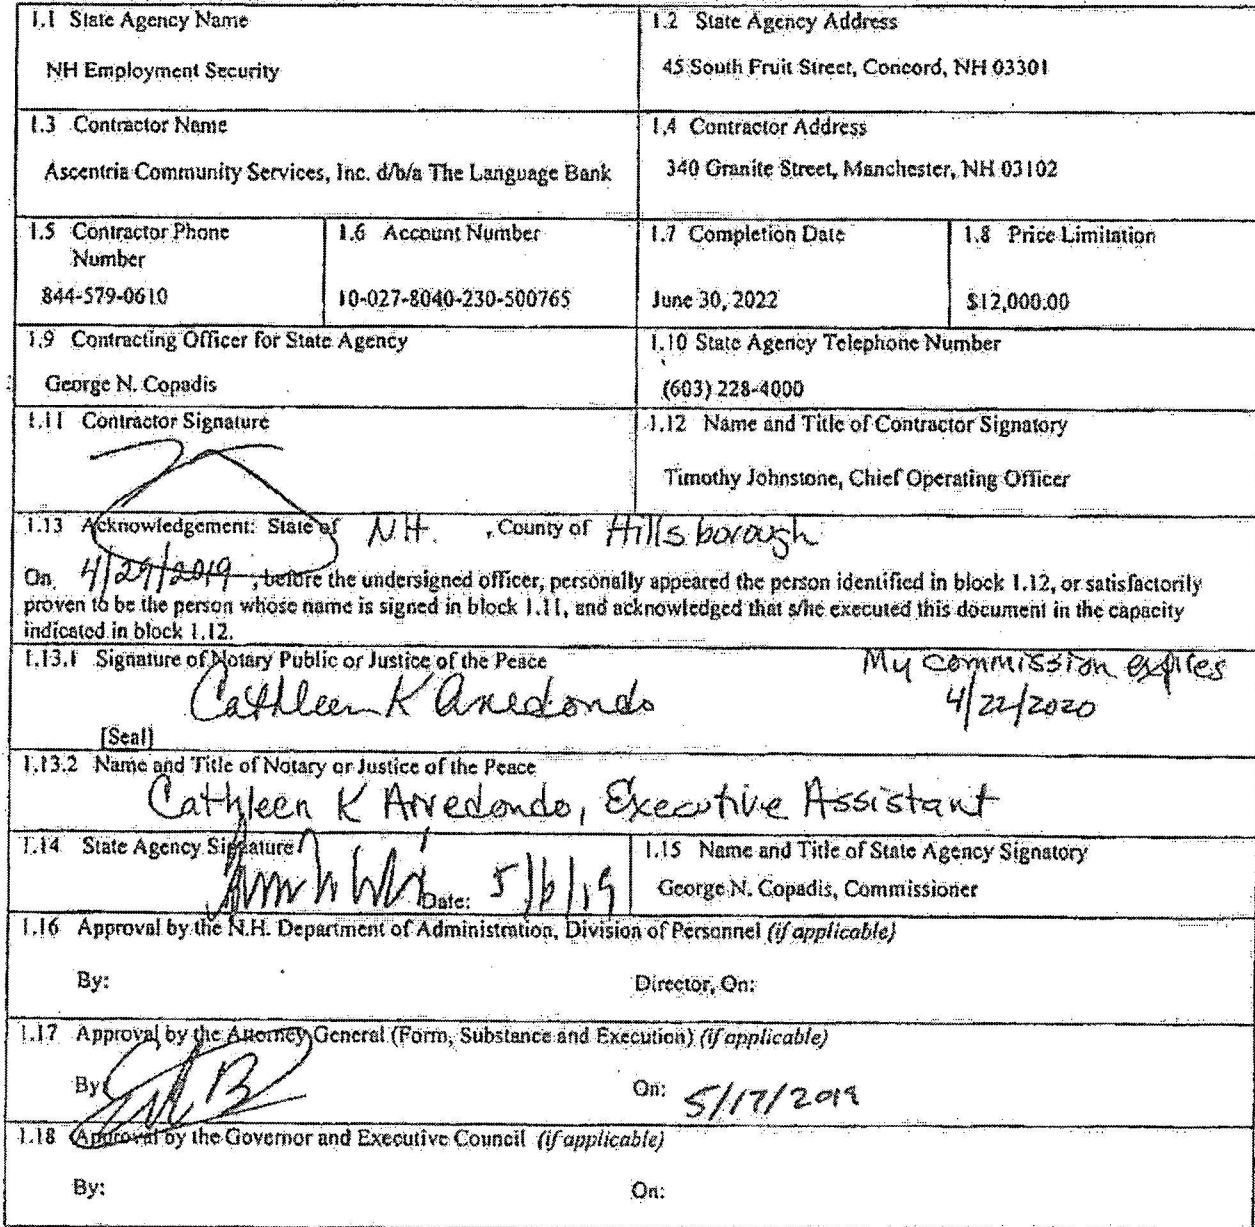 1.1 State Agency Name
NH Employment Security
1.2 State Agency Address
45 South Fruit Street, Concord, NH 03301
1.3 Contractor Name
Ascentria Community Services, Inc. d/b/a The Language Bank
1.4 Contractor Address
340 Granite Street, Manchester, NH 03102
1.5 Contractor Phone
Number
844-579-0610
1.6 Account Number
10-027-8040-230-500765
1.7 Completion Date
June 30, 2022
1.8 Price Limitation
$12,000.00
1.9 Contracting Officer for State Agency
George N. Copadis
1.10 State Agency Telephone Number
(603) 228-4000
1.11 Contractor Signature
1.12 Name and Title of Contractor Signatory
Timothy Johnstone, Chief Operating Officer
1.13 Acknowledgement: State of NH. , County of Hillsborough
On 4/29/2019 , before the undersigned officer, personally appeared the person identified in block 1.12, or satisfactorily
proven to be the person whose name is signed in block 1.11, and acknowledged that s/he executed this document in the capacity
indicated in block 1.12.
1.13.1 Signature of Notary Public or Justice of the Peace
My commission expires
4/22/2020
Cathleen K Arredondo
[Seal]
1.13.2 Name and Title of Notary or Justice of the Peace
Cathleen K Arredondo, Executive Assistant
1.14 State Agency Signature
Date: 5/6/19
1.15 Name and Title of State Agency Signatory
George N. Copadis, Commissioner
1.16 Approval by the N.H. Department of Administration, Division of Personnel (if applicable)
By: Director, On:
1.17 Approval by the Attorney General (Form, Substance and Execution) (if applicable)
By: On: 5/17/2019
1.18 Approval by the Governor and Executive Council (if applicable)
By: On: